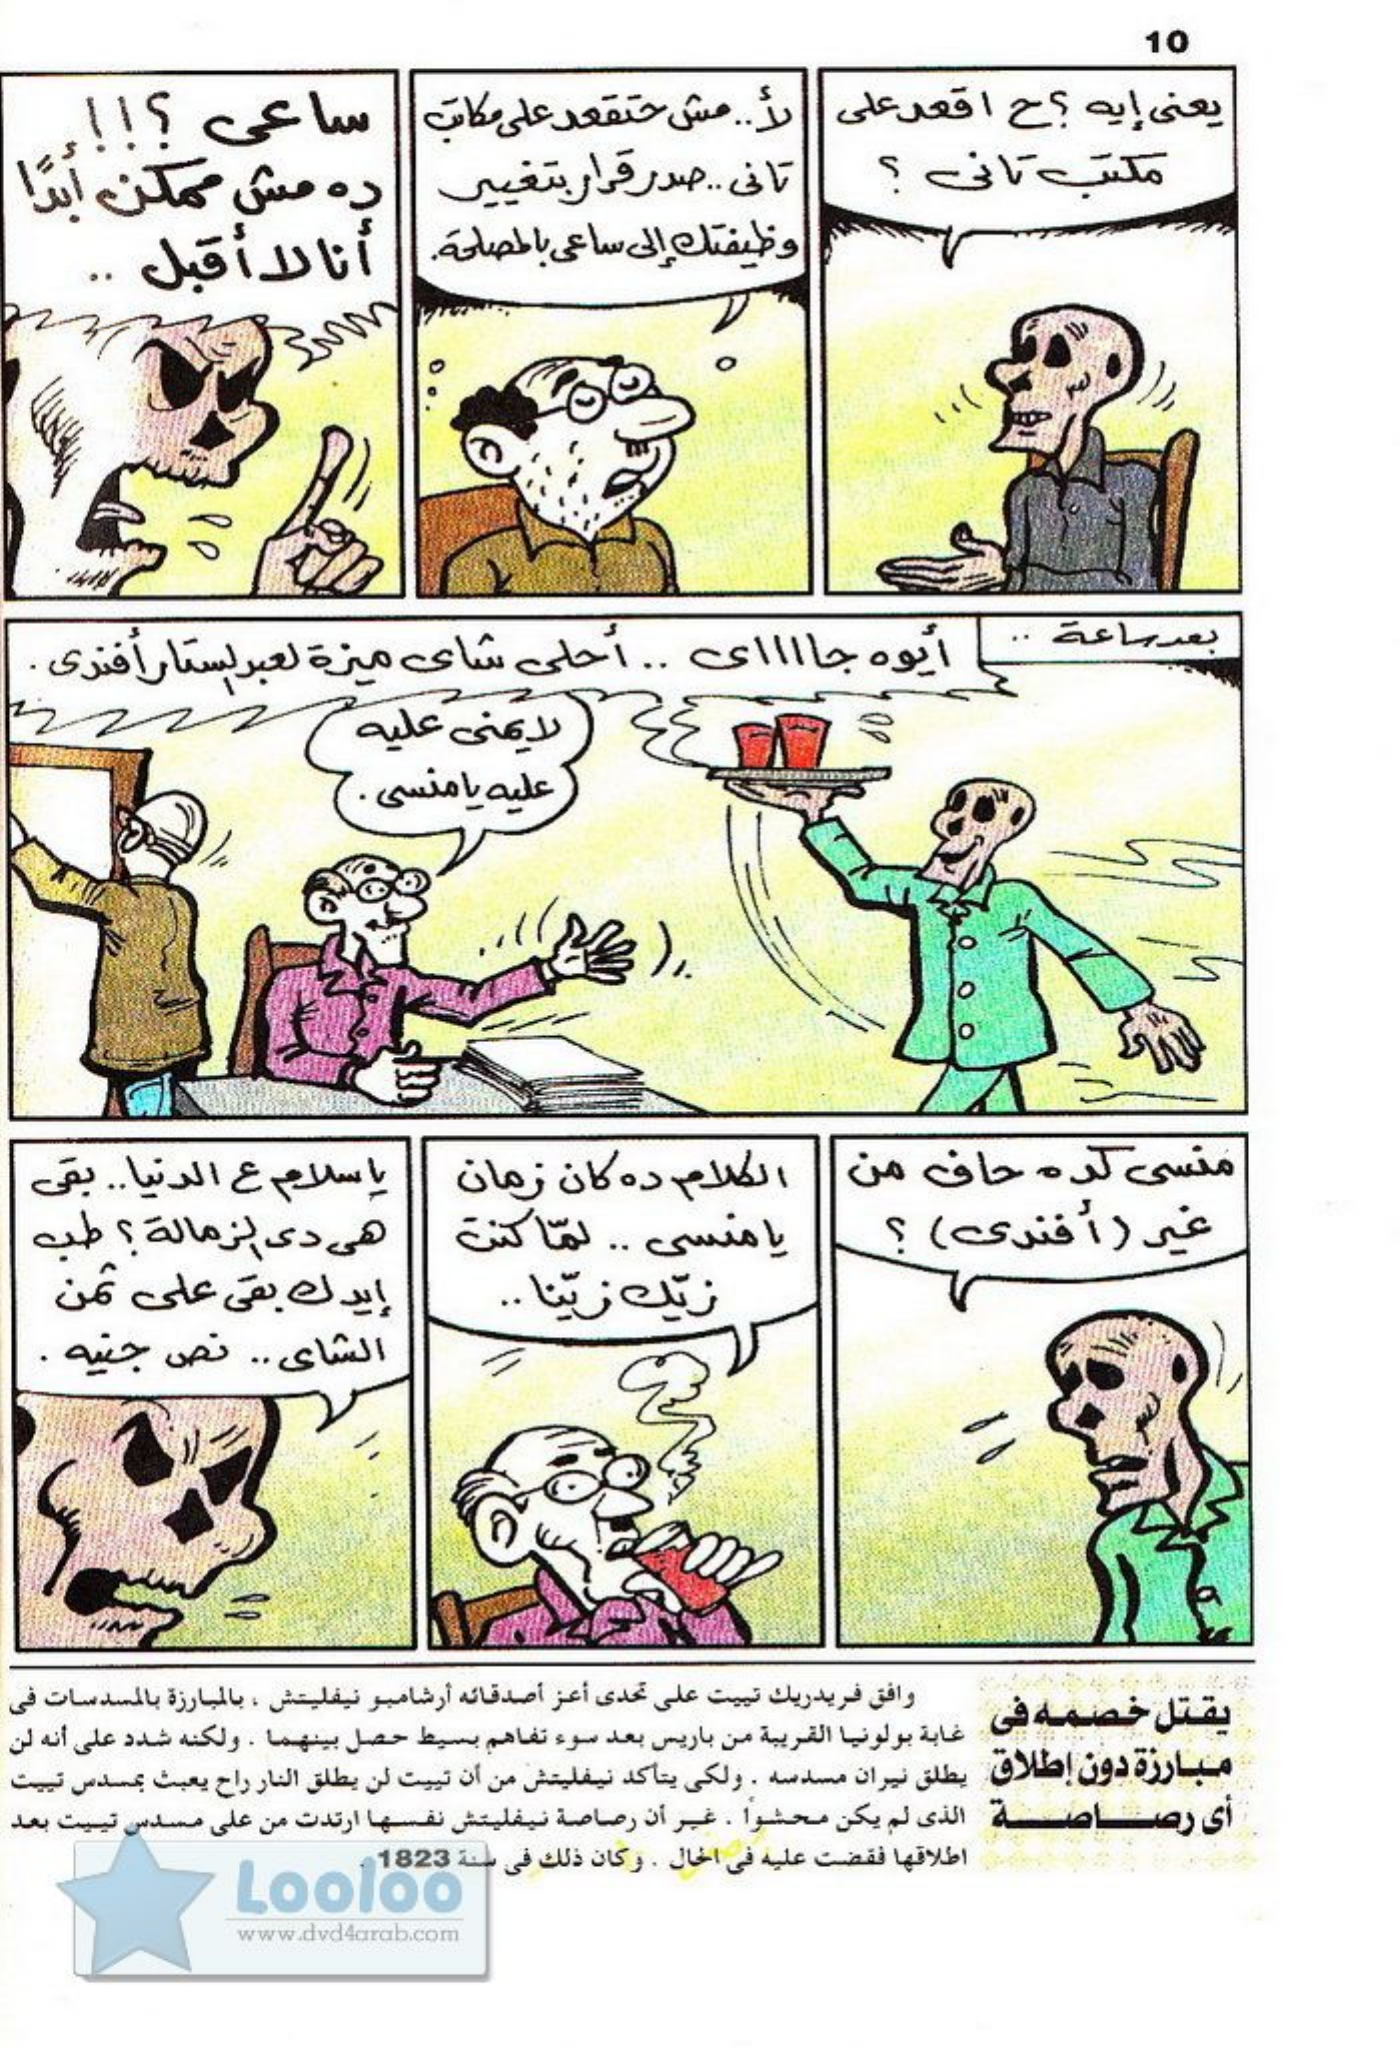 10
يعنى إيه ؟ ح اقعد على
مكتب تانى ؟
لأ.. مش حتقعد على مكاتب
تانى.. صدر قرار بتغيير
وظيفتك إلى ساعى بالمصلحة.
ساعى ؟!!!
ده مش ممكن أبدًا
أنا لا أقبل ..
بعد ساعة ..
أيوه جاااای .. أحلى شاى ميزة لعبد الستار أفندى .
لا يمنى عليه
عليه يا منسى .
منسى كده حاف من
غير (أفندى) ؟
الكلام ده كان زمان
يا منسى .. لمّا كنت
زيّك زيّنا ..
يا سلام ع الدنيا.. بقى
هى دى الزمالة ؟ طب
إيدك بقى على ثمن
الشاى .. نص جنيه .
يقتل خصمه فى
مبارزة دون إطلاق
أى رصاصة
وافق فريدريك تييت على تحدى أعز أصدقائه أرشامبو نيفليتش ، بالمبارزة بالمسدسات فى
غابة بولونيا القريبة من باريس بعد سوء تفاهم بسيط حصل بينهما . ولكنه شدد على أنه لن
يطلق نيران مسدسه . ولكى يتأكد نيفليتش من أن تييت لن يطلق النار راح يعبث بمسدس تييت
الذى لم يكن محشواً . غير أن رصاصة نيفليتش نفسها ارتدت من على مسدس تييت بعد
اطلاقها فقضت عليه فى الحال . وكان ذلك فى سنة 1823 .
Looloo
www.dvd4arab.com